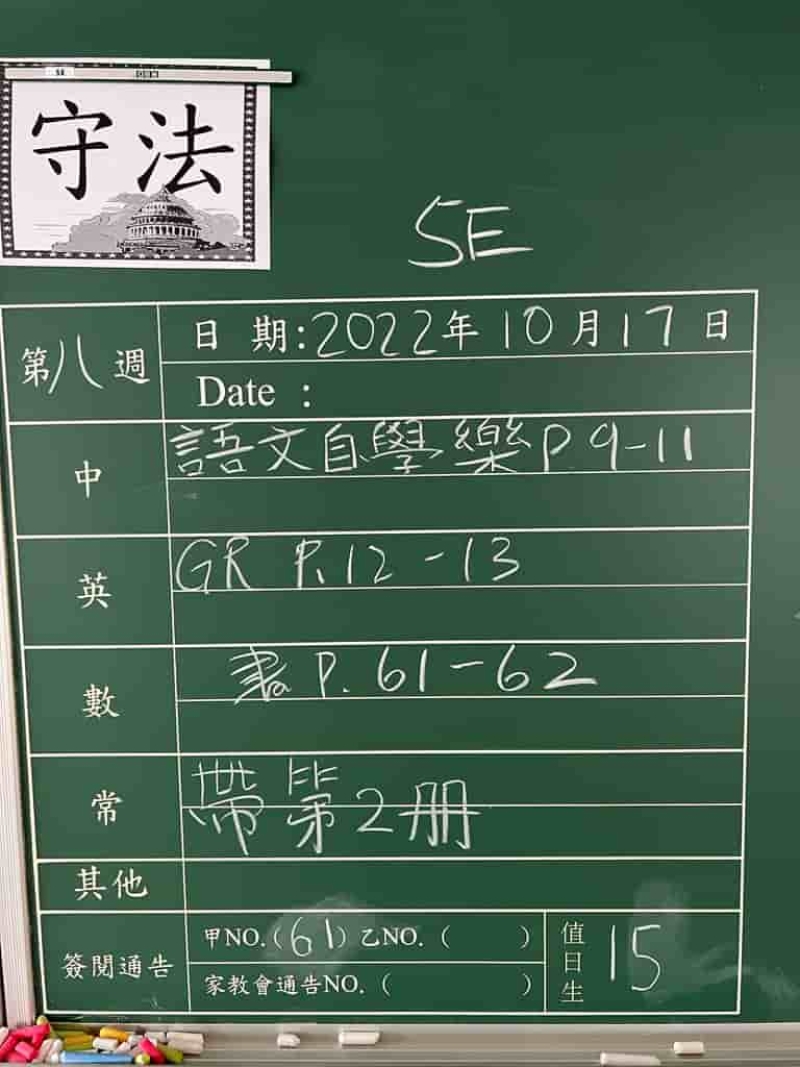 守法
5E
第八週
日期:2022年10月17日
Date :
中
語文自學樂P 9-11
英
GR P.12-13
數
書P. 61-62
常
帶第2冊
其他
簽閱通告
甲NO.(61) 乙NO. ( )
家教會通告NO. ( )
值日生
15